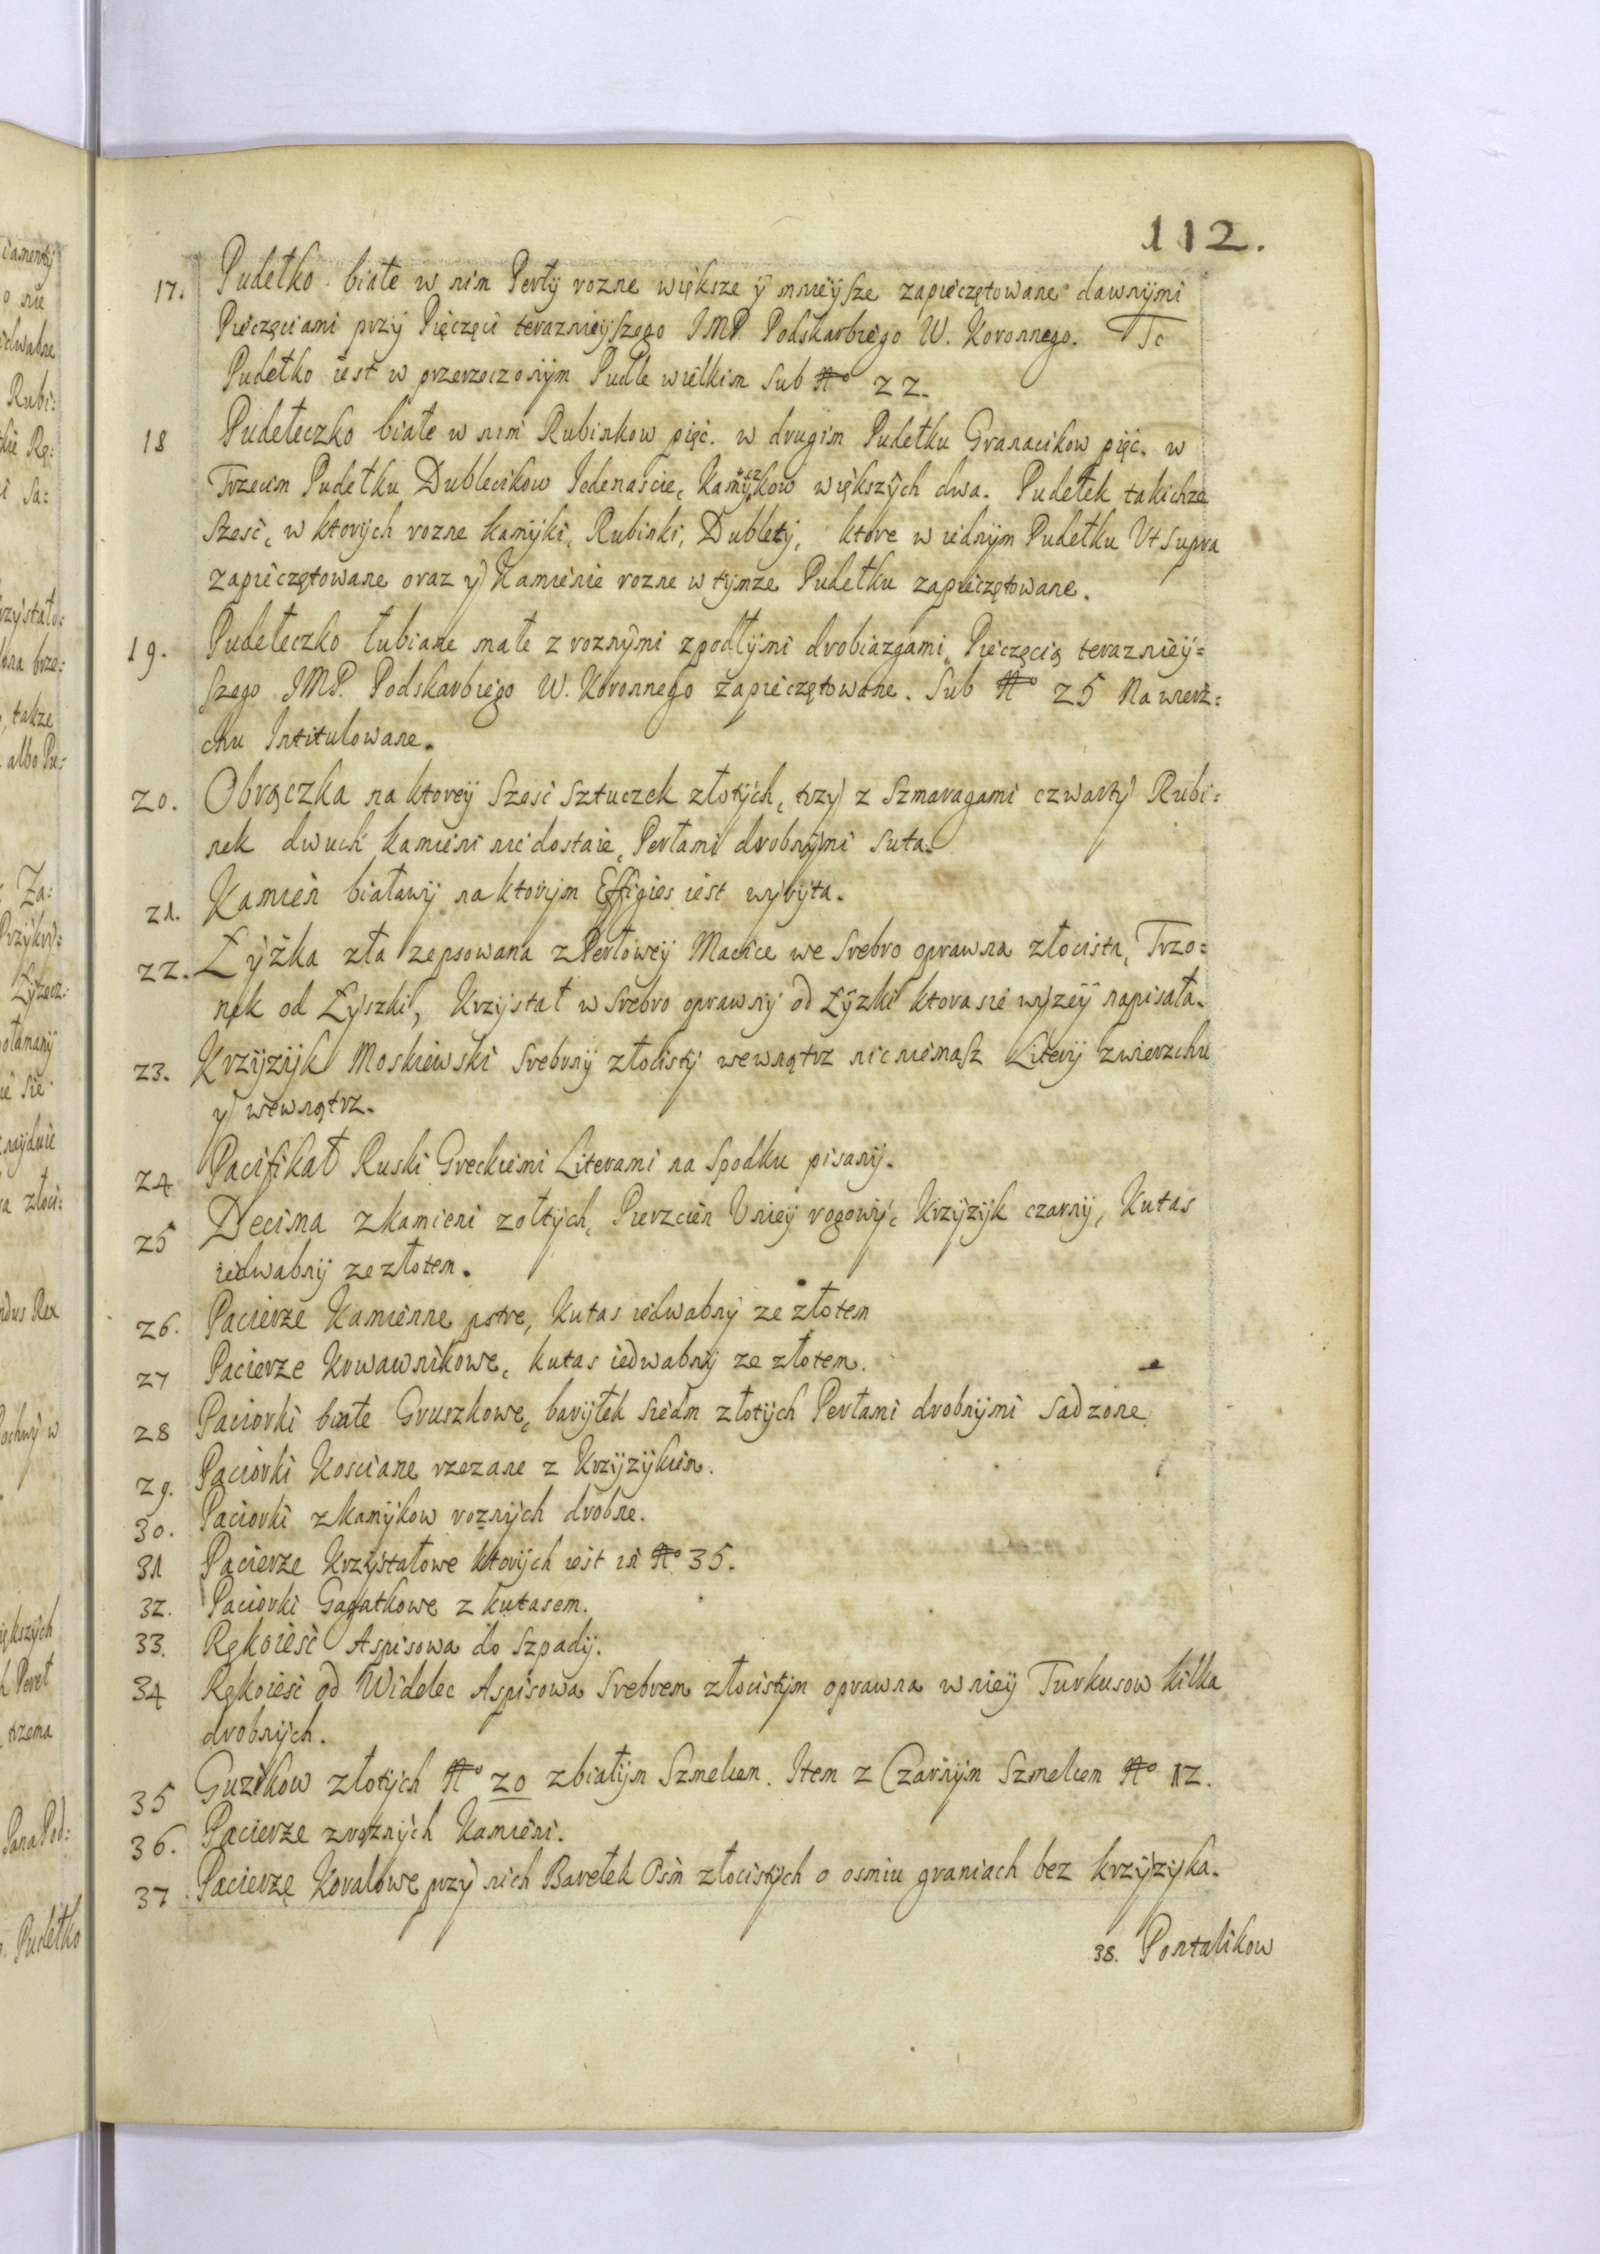 112.
17. Pudełko białe w nim Perły rozne większe ÿ mnieÿsze zapieczętowane dawnÿmi
Pieczęciami przÿ Pięczęci teraznieÿszego JMP. Podskarbiego W. Koronnego. To
Pudełko iest w przerzoczonÿm Pudle wielkim Sub No 22.
18 Pudełeczko białe w nim Rubinkow pięć. w drugim Pudełku Granacikow pięć. w
Trzecim Pudełku Dublecikow Jedenaście, Kamÿczkow większÿch dwa. Pudełek takichze
Sześć, w ktorÿch rozne kamÿki, Rubinki, Dubletÿ, ktore w iednÿm Pudełku Vt Supra
zapieczętowane oraz y Kamienie rozne w tÿmze Pudełku zapieczętowane.
19. Pudełeczko łubiane małe z roznÿmi zpodłÿmi drobiazgami, Pieczęcią teraznieÿ=
szego JMP. Podskarbiego W. Koronnego zapieczętowane. Sub No 25 Na wierz=
chu Intitulowane.
20. Obrączka na ktoreÿ Sześć Sztuczek złotÿch, trzy z Szmaragami czwartÿ Rubi=
nek dwuch kamieni niedostaie, Perłami drobnÿmi Suta.
21. Kamień białawÿ na ktorÿm Effigies iest wÿrÿta.
22. Łÿżka zła zepsowana z Perłoweÿ Macice we Srebro oprawna złocista, Trzo=
nęk od Łyszki, Krzÿstał w Srebro oprawnÿ od Łÿzki ktora sie wÿzeÿ napisała.
23. Krzÿzÿk Moskiewski Srebrnÿ złocistÿ wewnątrz nic niemasz Literÿ zwierzchu
y wewnątrz.
24 Pacifikał Ruski Greckiemi Literami na Spodku pisanÿ.
25 Decima z kamieni zołtÿch, Pierzcień Vnieÿ rogowÿ, Krzÿzÿk czarnÿ, Kutas
iedwabnÿ ze złotem.
26. Pacierze Kamienne pstre, Kutas iedwabnÿ ze złotem
27 Pacierze Krwawnikowe, kutas iedwabnÿ ze złotem.
28 Paciorki białe Gruszkowe, barÿłek siedm złotÿch Perłami drobnÿmi Sadzone.
29. Paciorki Kosciane rzezane z Krzÿzÿkiem.
30. Paciorki z kamÿkow roznÿch drobne.
31 Pacierze Krzÿstałowe ktorÿch iest in No 35.
32. Paciorki Gagatkowe z kutasem.
33. Rękoieść Aspisowa do Szpadÿ.
34 Rękoieść od Widelec Aspisowa Srebrem złocistÿm oprawna w nieÿ Turkusow kilka
drobnÿch.
35 Guzikow złotÿch No 20 z białÿm Szmelcem. Item z Czarnÿm Szmelcem No 12.
36. Pacierze z roznÿch Kamieni.
37. Pacierze Koralowe przÿ nich Barełek Ośm złocistÿch o osmiu graniach bez krzÿzÿka.
38. Pontalikow